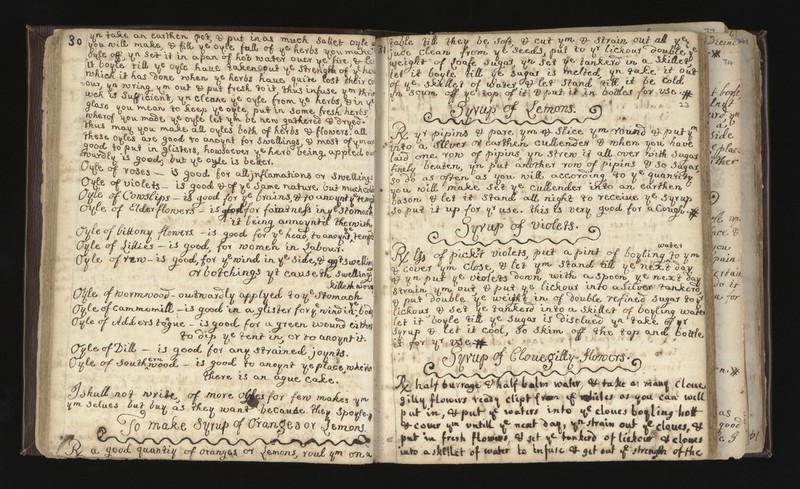 30
yn take an earthen pot, & put in as much sallet oyle as
you will make, & fill ye oyle full of ye herbs you make
oyle off, yn set it in a pan of hot water over ye fire, & let
it boyle till ye oyle have taken out ye strength of ye herbs
which it has done when ye herbs have quite lost their co
ous, yn wring ym out & put fresh to it, thus infuse ym thrice
wch is sufficient, yn cleane ye oyle from ye herbs, & in ye
glass you mean to keep ye oyle, put in some fresh herbs
wherof you made ye oyle let ym be new gathered & dryed.
thus may you make all oyles both of herbs & flowers. all
these oyles are good to anoynt for swellings, & most of ym are
good to put in glisters, howsoever ye herb being applied out
wardly is good, but ye oyle is better.
Oyle of roses — is good for all inflamations or swellings
Oyle of violets — is good & of ye same nature but much cold
Oyle of Cowslips — is good for ye brains, & to anoynt ye temp
Oyle of Elder flowers — is good for faintness in ye stomach
it being annoynted therwith
Oyle of bittony flowers — is good for ye head, to anoynt ye temp
Oyle of Lillies — is good, for women in Labour.
Oyle of rew — is good, for ye wind in ye side, & swellings
or botchings yt causeth swellings
killeth
Oyle of wormwood — outwardly applyed to ye stomach
Oyle of cammomill — is good in a glister for ye wind in body
Oyle of Adders togue — is good for a green wound either
to dip ye tent in, or to anoynt it.
Oyle of Dill — is good for any strained joynts.
Oyle of southernwood — is good to anoynt ye place, where
there is an ague cake.
I shall not write, of more oyles for few makes ym
ym selves but buy as they want because they spoyle
To make Syrup of Oranges or Lemons.
Rx a good quantity of oranges or Lemons, roul ym on a
31
table till they be soft & cut ym & strain out all ye
juce clean from ye seeds, put to yr lickour double ye
weight of loafe sugar, yn set ye tankerd in a skillet
let it boyle till ye sugar is melted, yn take it out
of ye skillet of water & let stand till it be cold
yn scum of ye top of it & put it in bottles for use.
23
Syrup of Lemons.
Rx yr pipins & pare ym & slice ym round & put ym
into a silver or earthen cullender & when you have
laid one row of pipins yn strew it all over with sugar
finely beaten, yn put another row of pipins & so sugar
so do as often as you will according to ye quantity
you will make set ye cullender into an earthen
bason & let it stand all night to receive ye syrup
so put it up for yr use. this is very good for a Cough.
Syrup of Violets.
water
Rx of pickt violets, put a pint of boyling to ym
& cover ym close, & let ym stand till ye next day
& yn put ye violets down with a spoon, ye next day
strain ym out & put ye lickour into a silver tankerd
& put double ye weight in of double refined sugar to yr
lickour & set ye tankerd into a skillet of boyling water
let it boyle till ye sugar is disolved yn take of yr
syrup & let it cool, so skim off the top and bottle
it for yr use
Syrup of Clouegilly-flowers.
Rx half burrage & half balm water, & take as many cloue
gilly flowers ready clipt from ye whites as you can well
put in, & put ye waters into ye cloues boyling hott
& cover ym untill ye next day, yn strain out ye cloues, &
put in fresh flowers, & set ye tankerd of lickour & cloues
into a skillet of water to infuse & get out ye strength of the